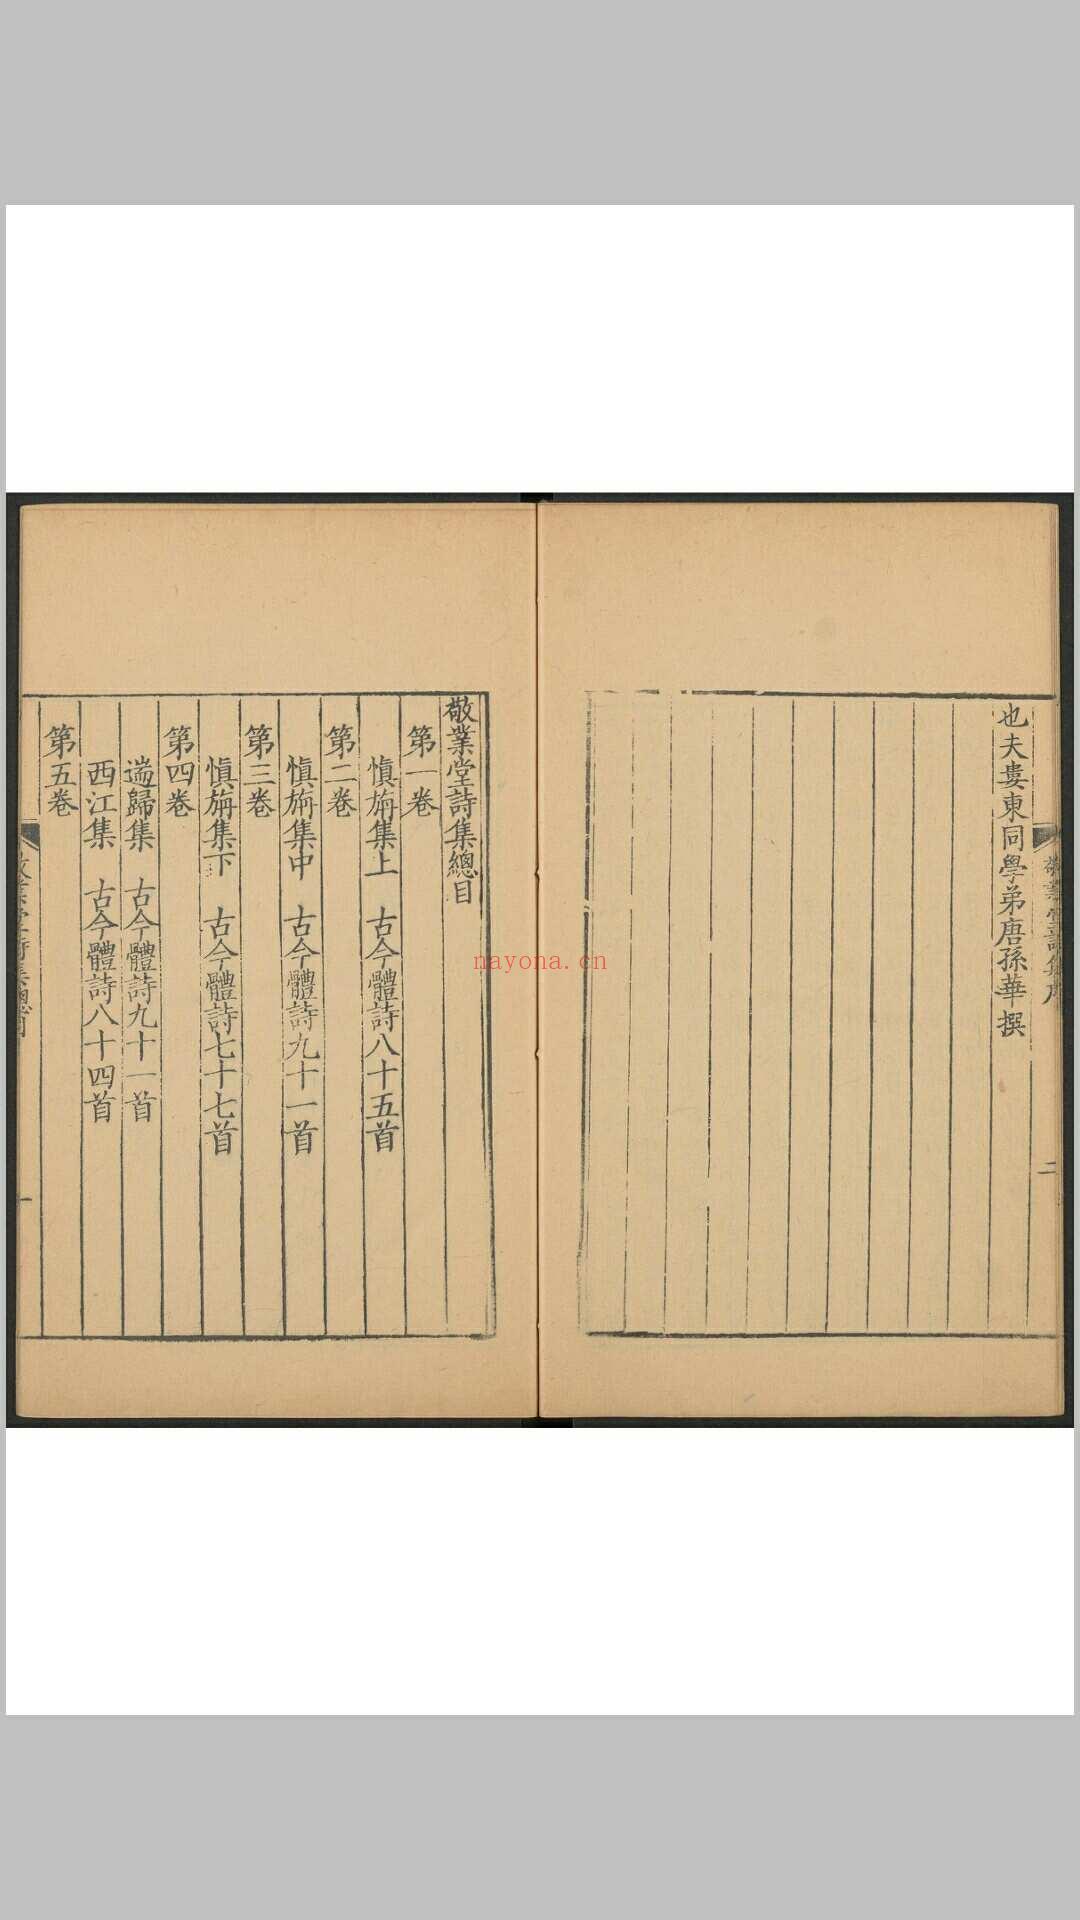 也夫婁東同學弟唐孫華撰
敬業堂詩集序
二
敬業堂詩集總目
第一卷
慎旃集上　古今體詩八十五首
第二卷
慎旃集中　古今體詩九十一首
第三卷
慎旃集下　古今體詩七十七首
第四卷
遄歸集　古今體詩九十一首
西江集　古今體詩八十四首
第五卷
敬業堂詩集總目
一
nayona.cn